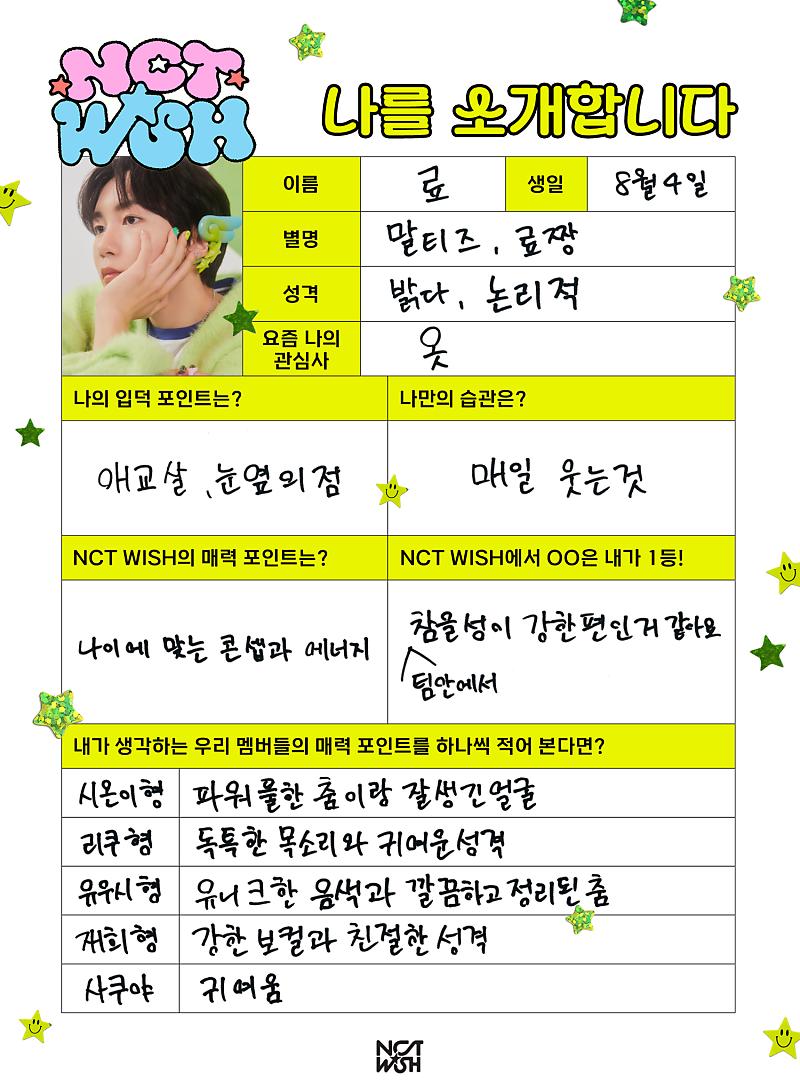 NCT
WISH
나를 소개합니다
이름
료
생일
8월 4일
별명
말티즈, 료짱
성격
밝다, 논리적
요즘 나의
관심사
옷
나의 입덕 포인트는?
나만의 습관은?
애교살, 눈옆의 점
매일 웃는것
NCT WISH의 매력 포인트는?
NCT WISH에서 OO은 내가 1등!
나이에 맞는 콘셉과 에너지
참을성이 강한편인거 같아요
팀안에서
내가 생각하는 우리 멤버들의 매력 포인트를 하나씩 적어 본다면?
시온이형
파워풀한 춤이랑 잘생긴얼굴
리쿠형
독특한 목소리와 귀여운성격
유우시형
유니크한 음색과 깔끔하고 정리된 춤
재희형
강한 보컬과 친절한 성격
사쿠야
귀여움
NCT
WISH